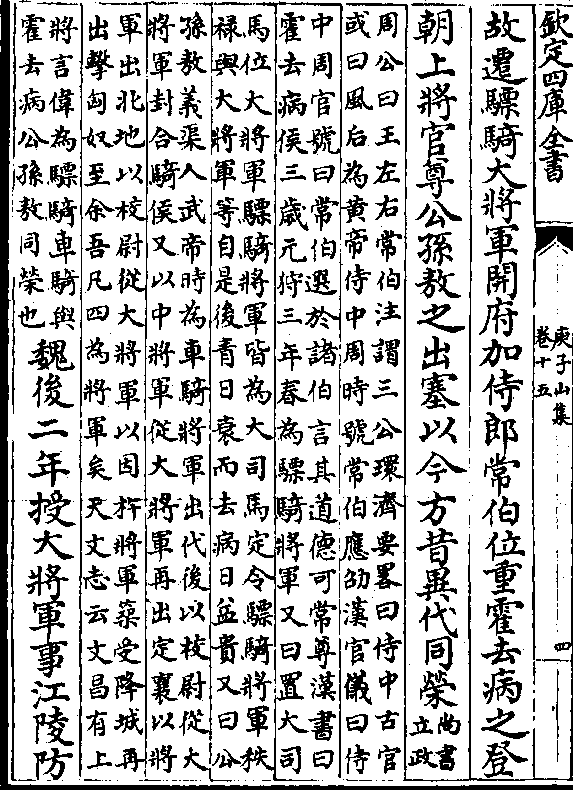 欽定四庫全書
庾子山集
卷十五
四
故遷驃騎大將軍開府加侍郎常伯位重霍去病之登
朝上將官尊公孫敖之出塞以今方昔異代同榮尚書
立政
周公曰王左右常伯注謂三公環濟要畧曰侍中古官
或曰風后為黃帝侍中周時號常伯應劭漢官儀曰侍
中周官號曰常伯選於諸伯言其道德可常尊漢書曰
霍去病侯三歲元狩三年春為驃騎將軍又曰置大司
馬位大將軍驃騎將軍皆為大司馬定令驃騎將軍秩
祿與大將軍等自是後青日衰而去病日益貴又曰公
孫敖義渠人武帝時為車騎將軍出代後以校尉從大
將軍封合騎侯又以中將軍從大將軍再出定襄以將
軍出北地以校尉從大將軍以因杅將軍築受降城再
出擊匈奴至余吾凡四為將軍矣天文志云文昌有上
將言偉為驃騎車騎與
霍去病公孫敖同榮也
魏後二年授大將軍事江陵防